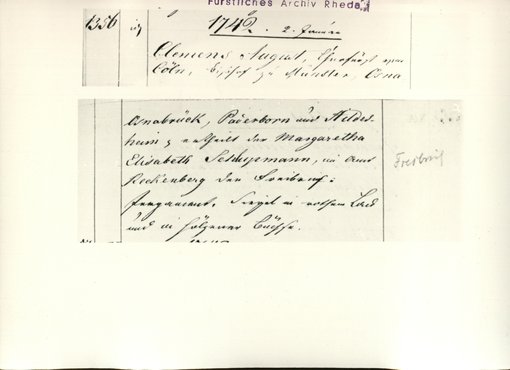 Fürstliches Archiv Rheda
1356
1742. 2. Januar
Clemens August, Churfürst von
Cöln, Bischof zu Münster, Osna
Osnabrück, Paderborn und Hildes-
heim, ertheilt der Margaretha
Elisabeth Schlupmann, im Amt
Reckenberg den Freibrief.
Pergament. Siegel in rothem Lack
und in hölzener Büchse.
Freibrief